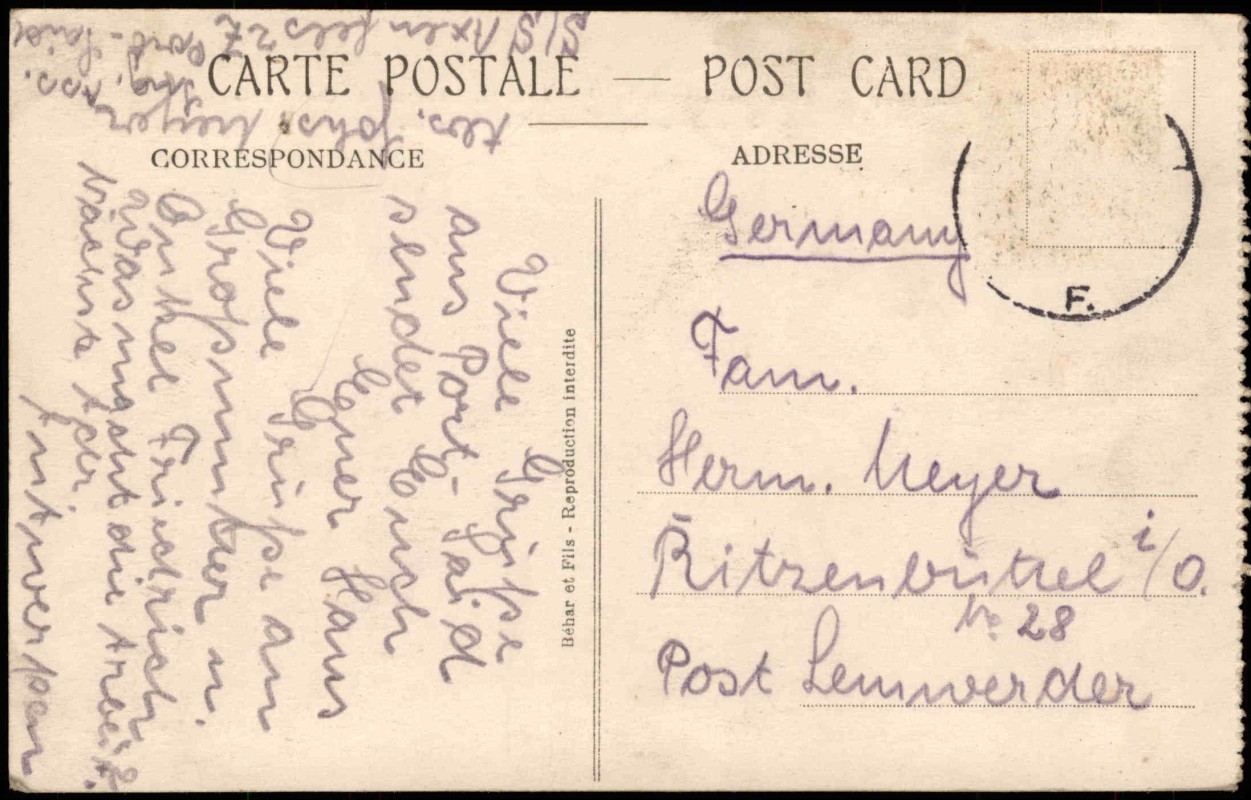 CARTE POSTALE — POST CARD
CORRESPONDANCE
ADRESSE
Viele Grüße
aus Port-Said
sendet Euch
Euer Hans
Viele Grüße an
Großmutter u.
Onkel Friedrich
Was macht die Arbeit.
Nächste
Antwerpen
Abs. Johs Meyer
Port-Said
Béhar et Fils - Reproduction interdite
F.
Germany
Fam.
Herm. Meyer
Ritzenbüttel i/O.
No 28
Post Lemwerder